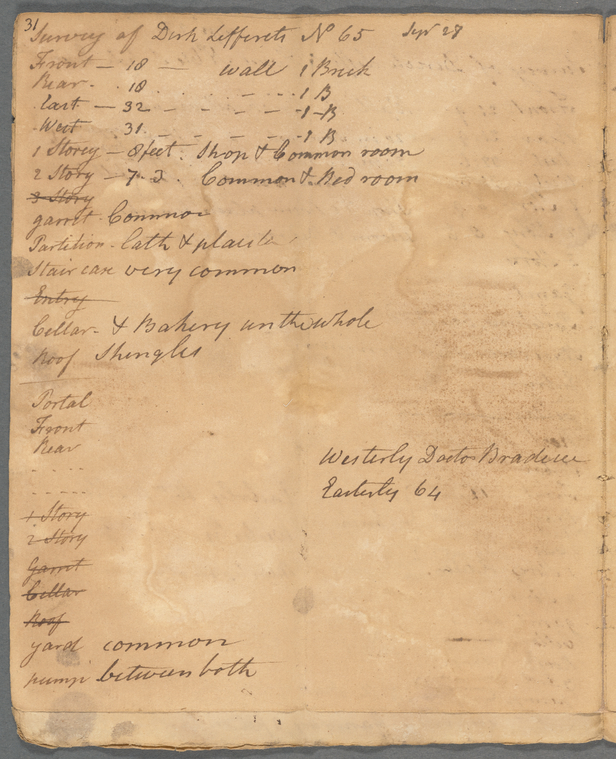 31
Survey of Dirk Lefferets No 65 Sepr 28
Front - 18 - wall 1 Brick
Rear - . 18 . - - - - . 1 B
East - 32 - - - - - 1 - B
West - 31 - - - - - 1 B
1 Storey - 8 feet . Shop & Common room
2 Story - 7. 3 . Common & Bed room
3 Story
garret - Common
Partition - Lath & plaster
Stair case very common
Entry
Cellar - & Bakery on the whole
Roof Shingles
Portal
Front
Rear
Westerly Doctor
Easterly 64
1 Story
2 Story
Garret
Cellar
Roof
yard common
pump between both